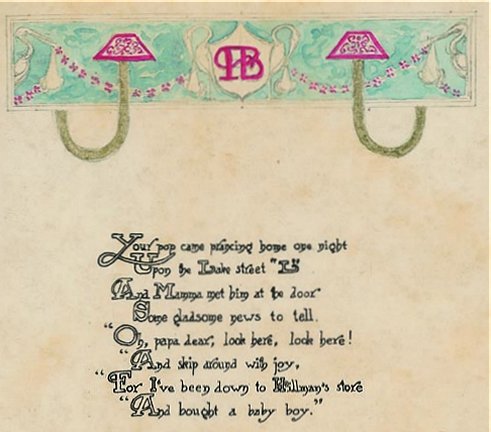 HB
Your pop came prancing home one night
Upon the Lake street "L"
And Mamma met him at the door
Some gladsome news to tell.
"Oh, papa dear, look here, look here!
"And skip around with joy,
"For I've been down to Hillman's store
"And bought a baby boy."